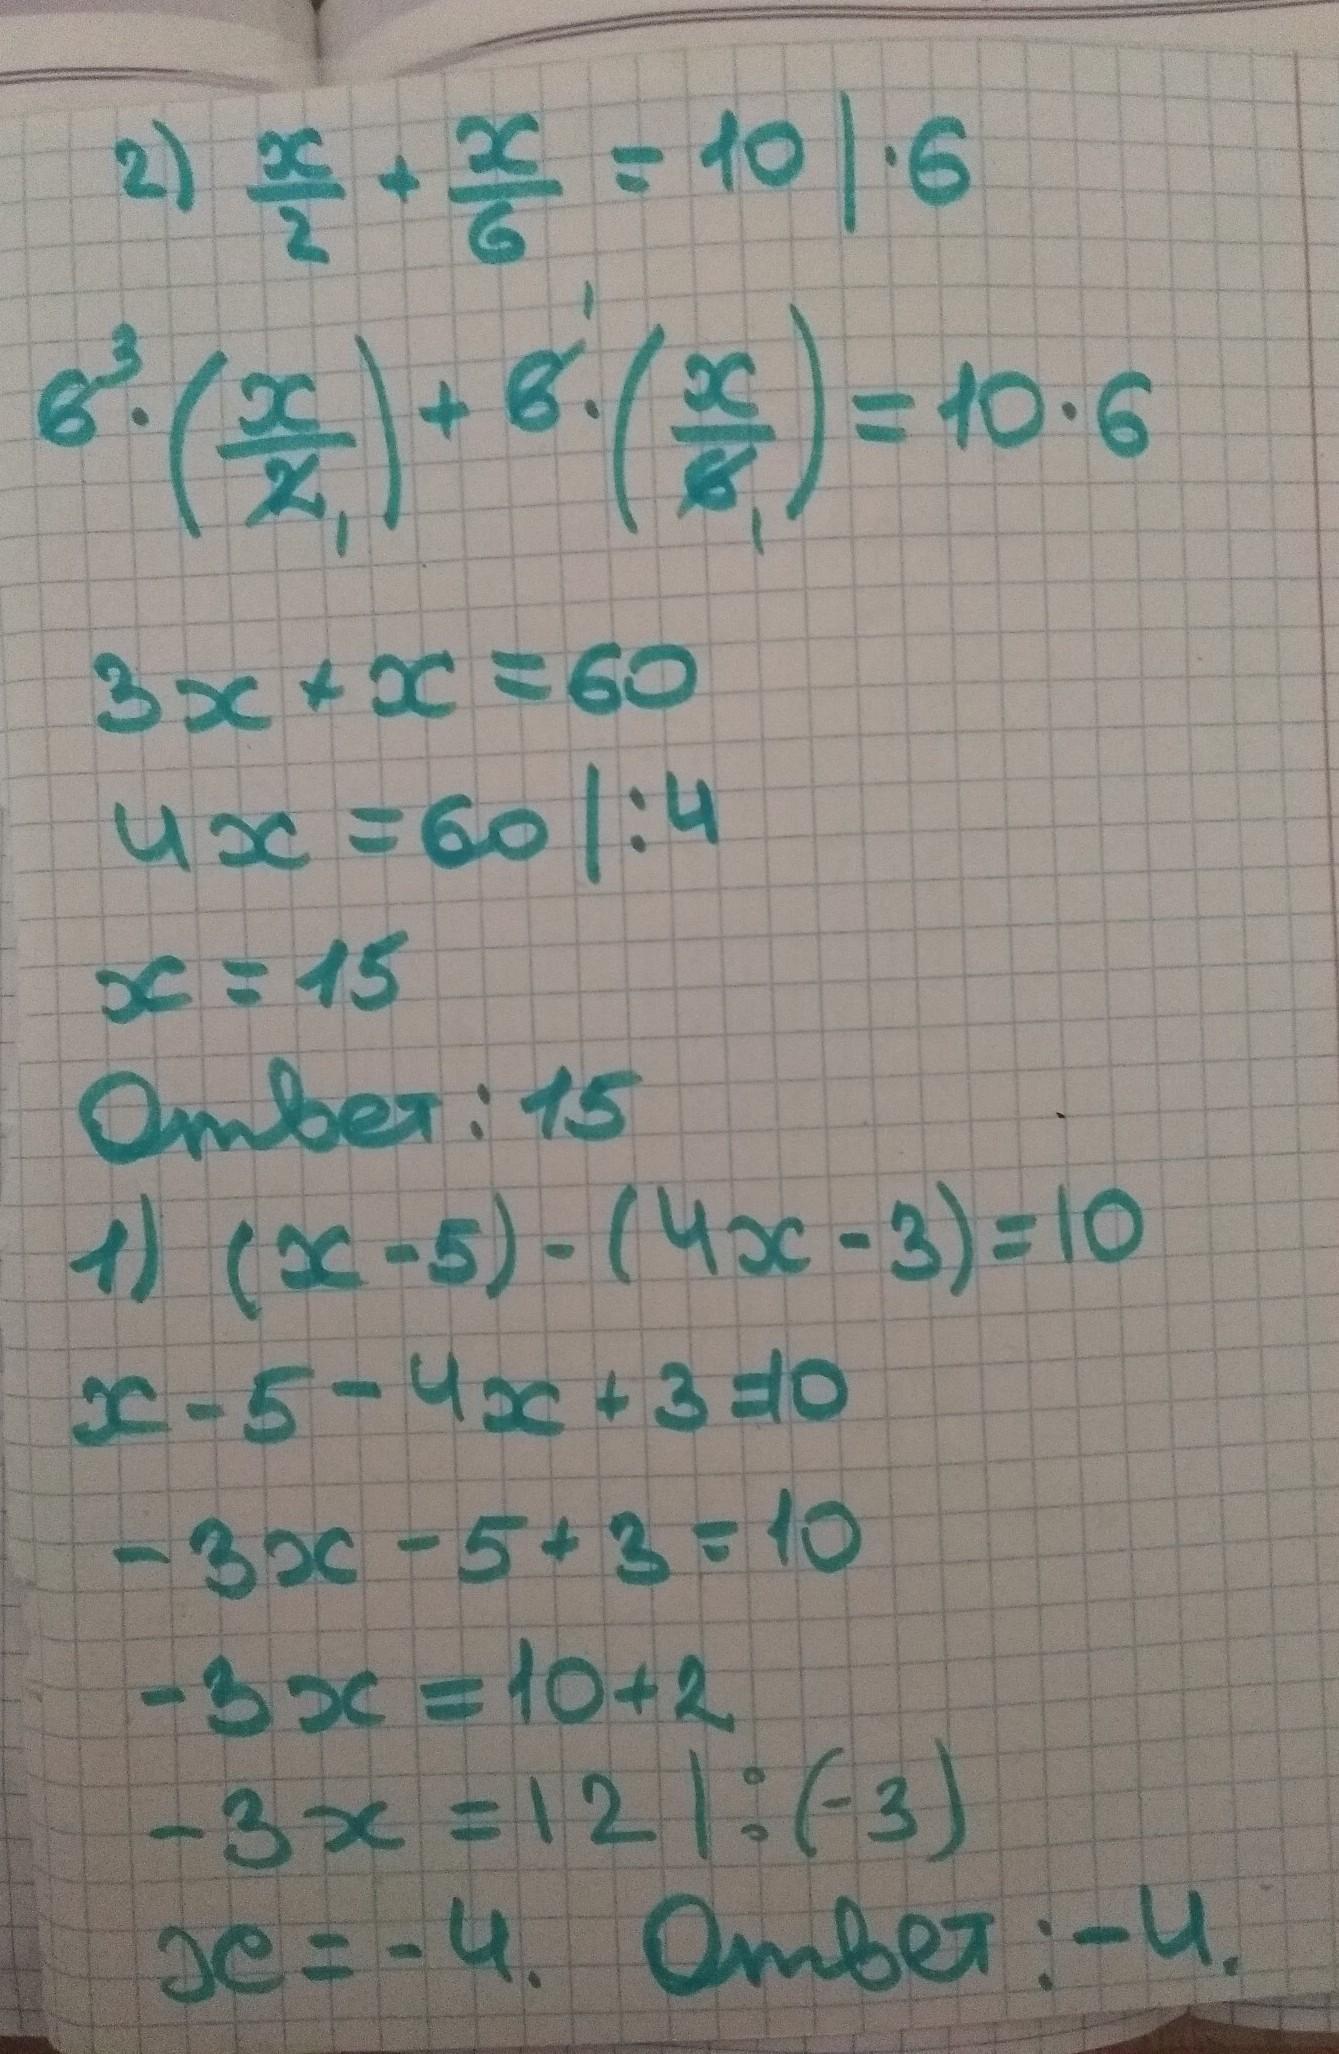 2) x/2 + x/6 = 10 | · 6
6³ · (x/2₁) + 6¹ · (x/6₁) = 10 · 6
3x + x = 60
4x = 60 | : 4
x = 15
Ответ : 15
1) (x - 5) - (4x - 3) = 10
x - 5 - 4x + 3 = 10
- 3x - 5 + 3 = 10
- 3x = 10 + 2
- 3x = 12 | : (-3)
x = - 4. Ответ : - 4.